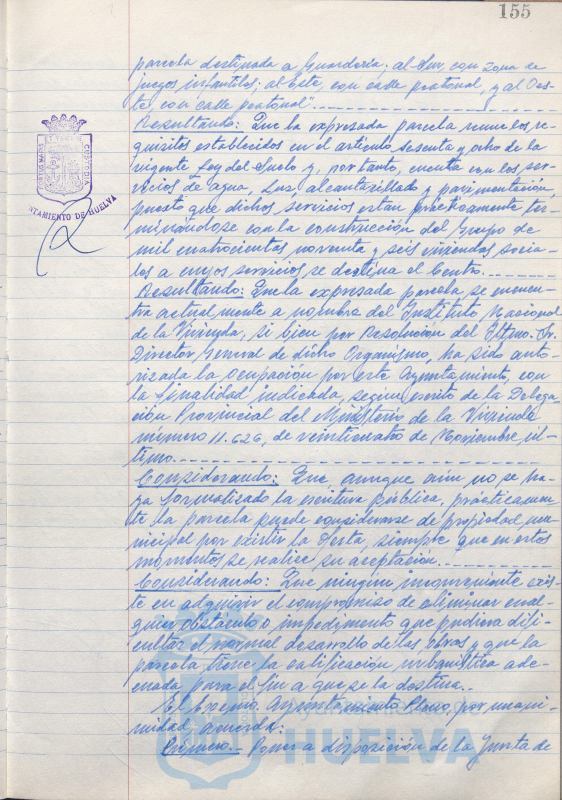 155
parcela destinada a Guardería; al Sur, con zona de
juegos infantiles; al Este, con calle peatonal, y al Oes-
te, con calle peatonal".
Resultando: Que la expresada parcela reune los re-
quisitos establecidos en el artículo sesenta y ocho de la
vigente Ley del Suelo y, por tanto, cuenta con los ser-
vicios de agua, luz, alcantarillado y pavimentación,
puesto que dichos servicios estan prácticamente ter-
minándose con la construcción del Grupo de
mil cuatrocientas noventa y seis viviendas socia-
les a cuyos servicios se destina el Centro.
Resultando: Que la expresada parcela se encuen-
tra actualmente a nombre del Instituto Nacional
de la Vivienda, si bien por Resolución del Iltmo. Sr.
Director General de dicho Organismo, ha sido auto-
rizada la ocupación por este Ayuntamiento, con
la finalidad indicada, según escrito de la Delega-
ción Provincial del Ministerio de la Vivienda
número 11.626, de veinticuatro de Noviembre úl-
timo.
Considerando: Que, aunque aún no se ha-
ya formalizado la escritura pública, prácticamen-
te la parcela puede considerarse de propiedad mu-
nicipal por existir la oferta, siempre que en estos
momentos se realice su aceptación.
Considerando: Que ningún inconveniente exis-
te en adquirir el compromiso de eliminar cual-
quier obstáculo o impedimento que pudiera difi-
cultar el normal desarrollo de las obras y que la
parcela tiene la calificación urbanística ade-
cuada para el fin a que se la destina.
El Excmo. Ayuntamiento Pleno, por unani-
midad, acuerda:
Primero.- Poner a disposición de la Junta de
CUSTODIA
AYUNTAMIENTO DE HUELVA
Ayuntamiento de
HUELVA